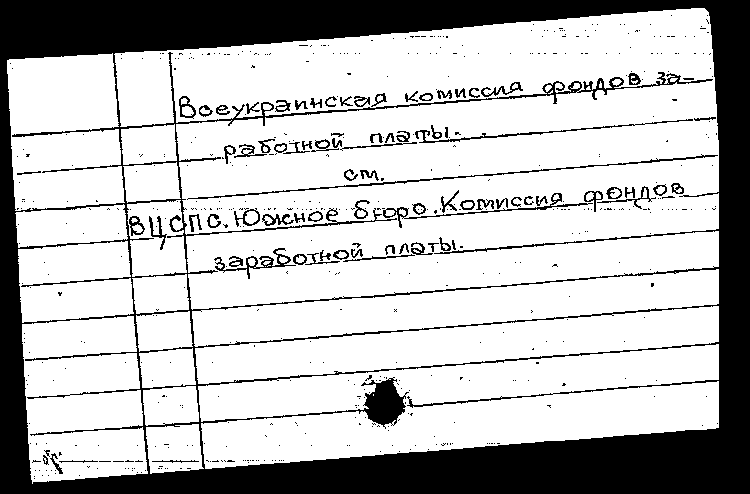 Всеукраинская комиссия фондов за-
работной платы.
см.
ВЦСПС. Южное бюро. Комиссия фондов
заработной платы.